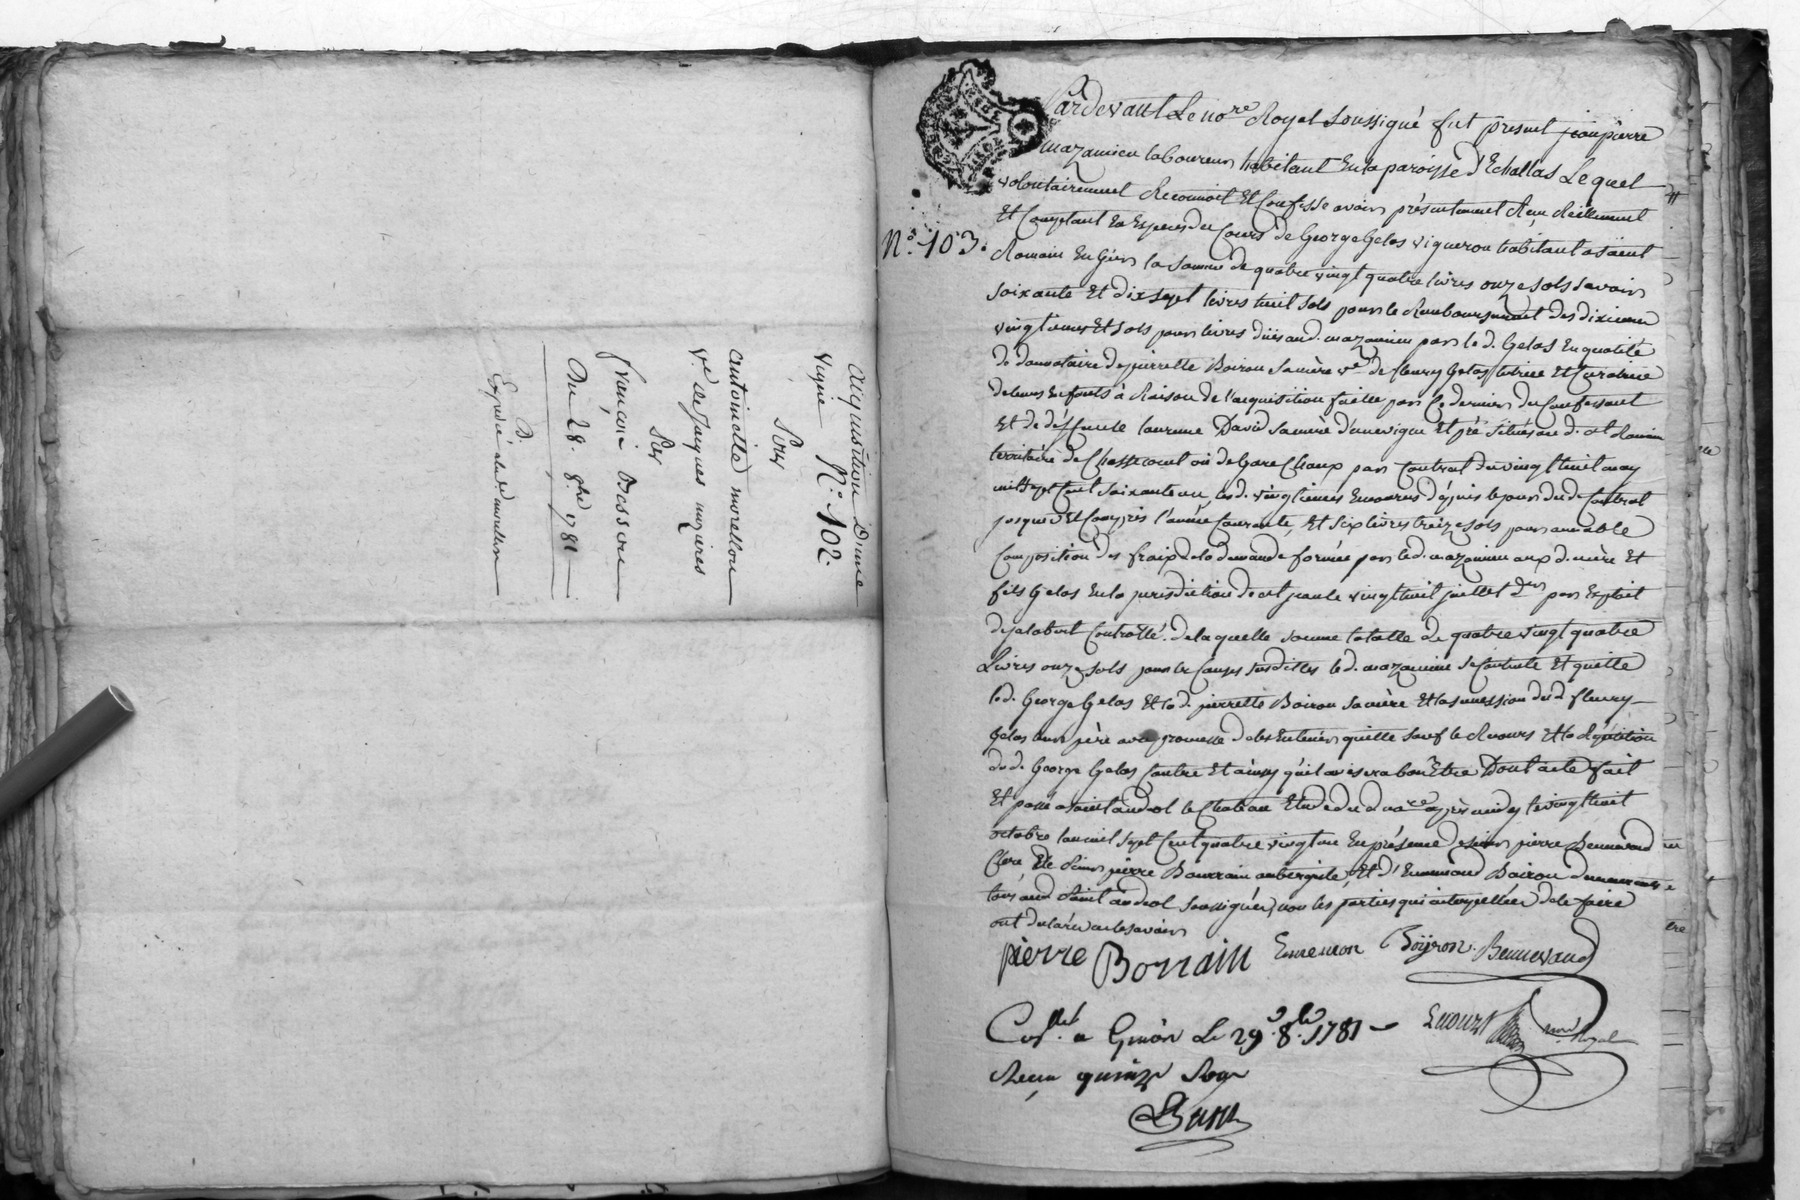 acquisition d'une
vigne N.º 102.
Pour
antoinette morellon
v.e de Jaques mazieres
Par
françois Besson
Du 28. 8.bre 1781
Expedié
N.º 103.
Pardevant Le no.re Royal Soussigné fut present jean pierre
mazamieu laboureur habitant En la paroisse d'Echallas Lequel
volontairement Reconnoit Et Confesse avoir présentement Reçu Réellement
Et Comptant En Especes du Cours de George Gelas vigneron habitant a saint
Romain En Giers la somme de quatre vingt quatre livres onze sols savoir
soixante Et dix sept livres huit sols pour le Remboursement des dixiemes
vingtiemes Et sols pour livres dües aud. mazamieu par led. Gelas En qualité
de donnataire de pierrette Boiron sa mère v.e de fleury Gelas tutrice Et Curatrice
de leurs Enfants à Raison de l'acquisition faitte par Ce dernier du Confessant
Et de déffunte laurence David sa mère d'une vigne Et pré situés aud. st Romain
territoire de Chassecourt ou de Gare Champ par Contrat du vingt huit may
mil sept Cent soixante un, les d. vingtiemes Encourus dépuis le jour dud. Contrat
jusques Et Compris l'année Courante, Et six livres treize sols pour amiable
Composition des fraix de la demande formée par led. mazamieu aux d. mère Et
fils Gelas En la jurisdiction de vingt huit juillet d.er par Exploit
de jalabert Controllé. de la quelle somme totalle de quatre vingt quatre
Livres onze sols pour les Causes susdittes led. mazamieu se Contente Et quitte
led. George Gelas Et lad. pierrette Boiron sa mère Et la succession dud. fleury
Gelas son père avec promesse de les En tenir quitte sauf le Recours Et la Répétition
dud. George Gelas Contre Et ainsy qu'il avisera bon Etre Dont acte fait
Et passé a saint andéol le Chateau Etude dud. no.re après midy le vingt huit
octobre l'an mil sept Cent quatre vingt un En présence de sieur pierre Bennevaud
Clerc Et de sieur pierre Bourrain aubergiste, Et d'Ennemond Boiron
tous aud. saint andéol soussignés, non les parties qui interpellées de le faire
ont déclaré ne le savoir
pierre Borrain Ennemon Boÿron Bennevaud
Con.lé a Givors Le 29. 8.bre 1781
Recu quinze Sols
no.re Royal